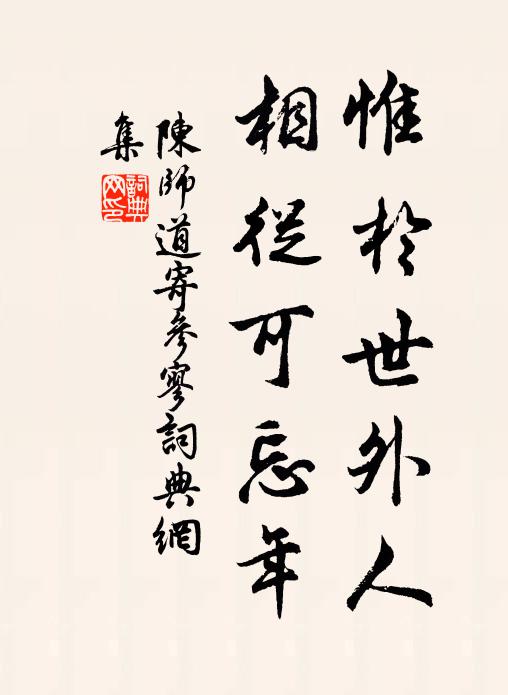 惟於世外人
相從可忘年
陳師道寄參寥詞典網
集
詞典網印